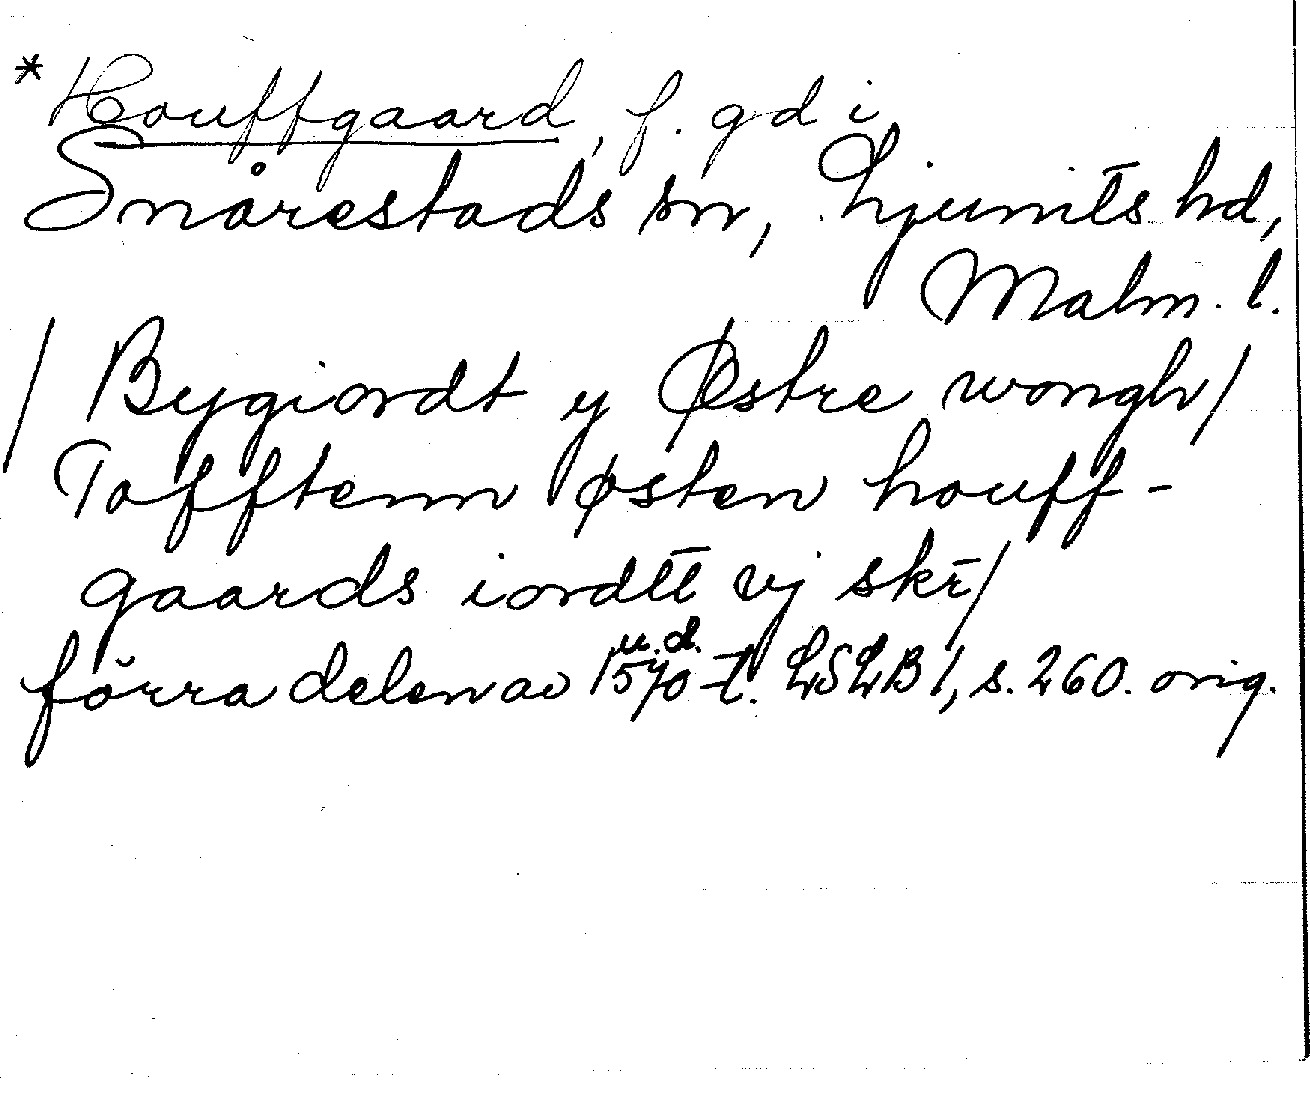 * Houffgaard, f. gd i
Snårestads sn, Ljunits hd,
Malm. l.
/ Bygiordt y Østre wongh/
Tofftenn østen houff-
gaards iordtt vj skr/
förra delen av 1570-t. LSLB 1, s. 260. orig.
u. d.